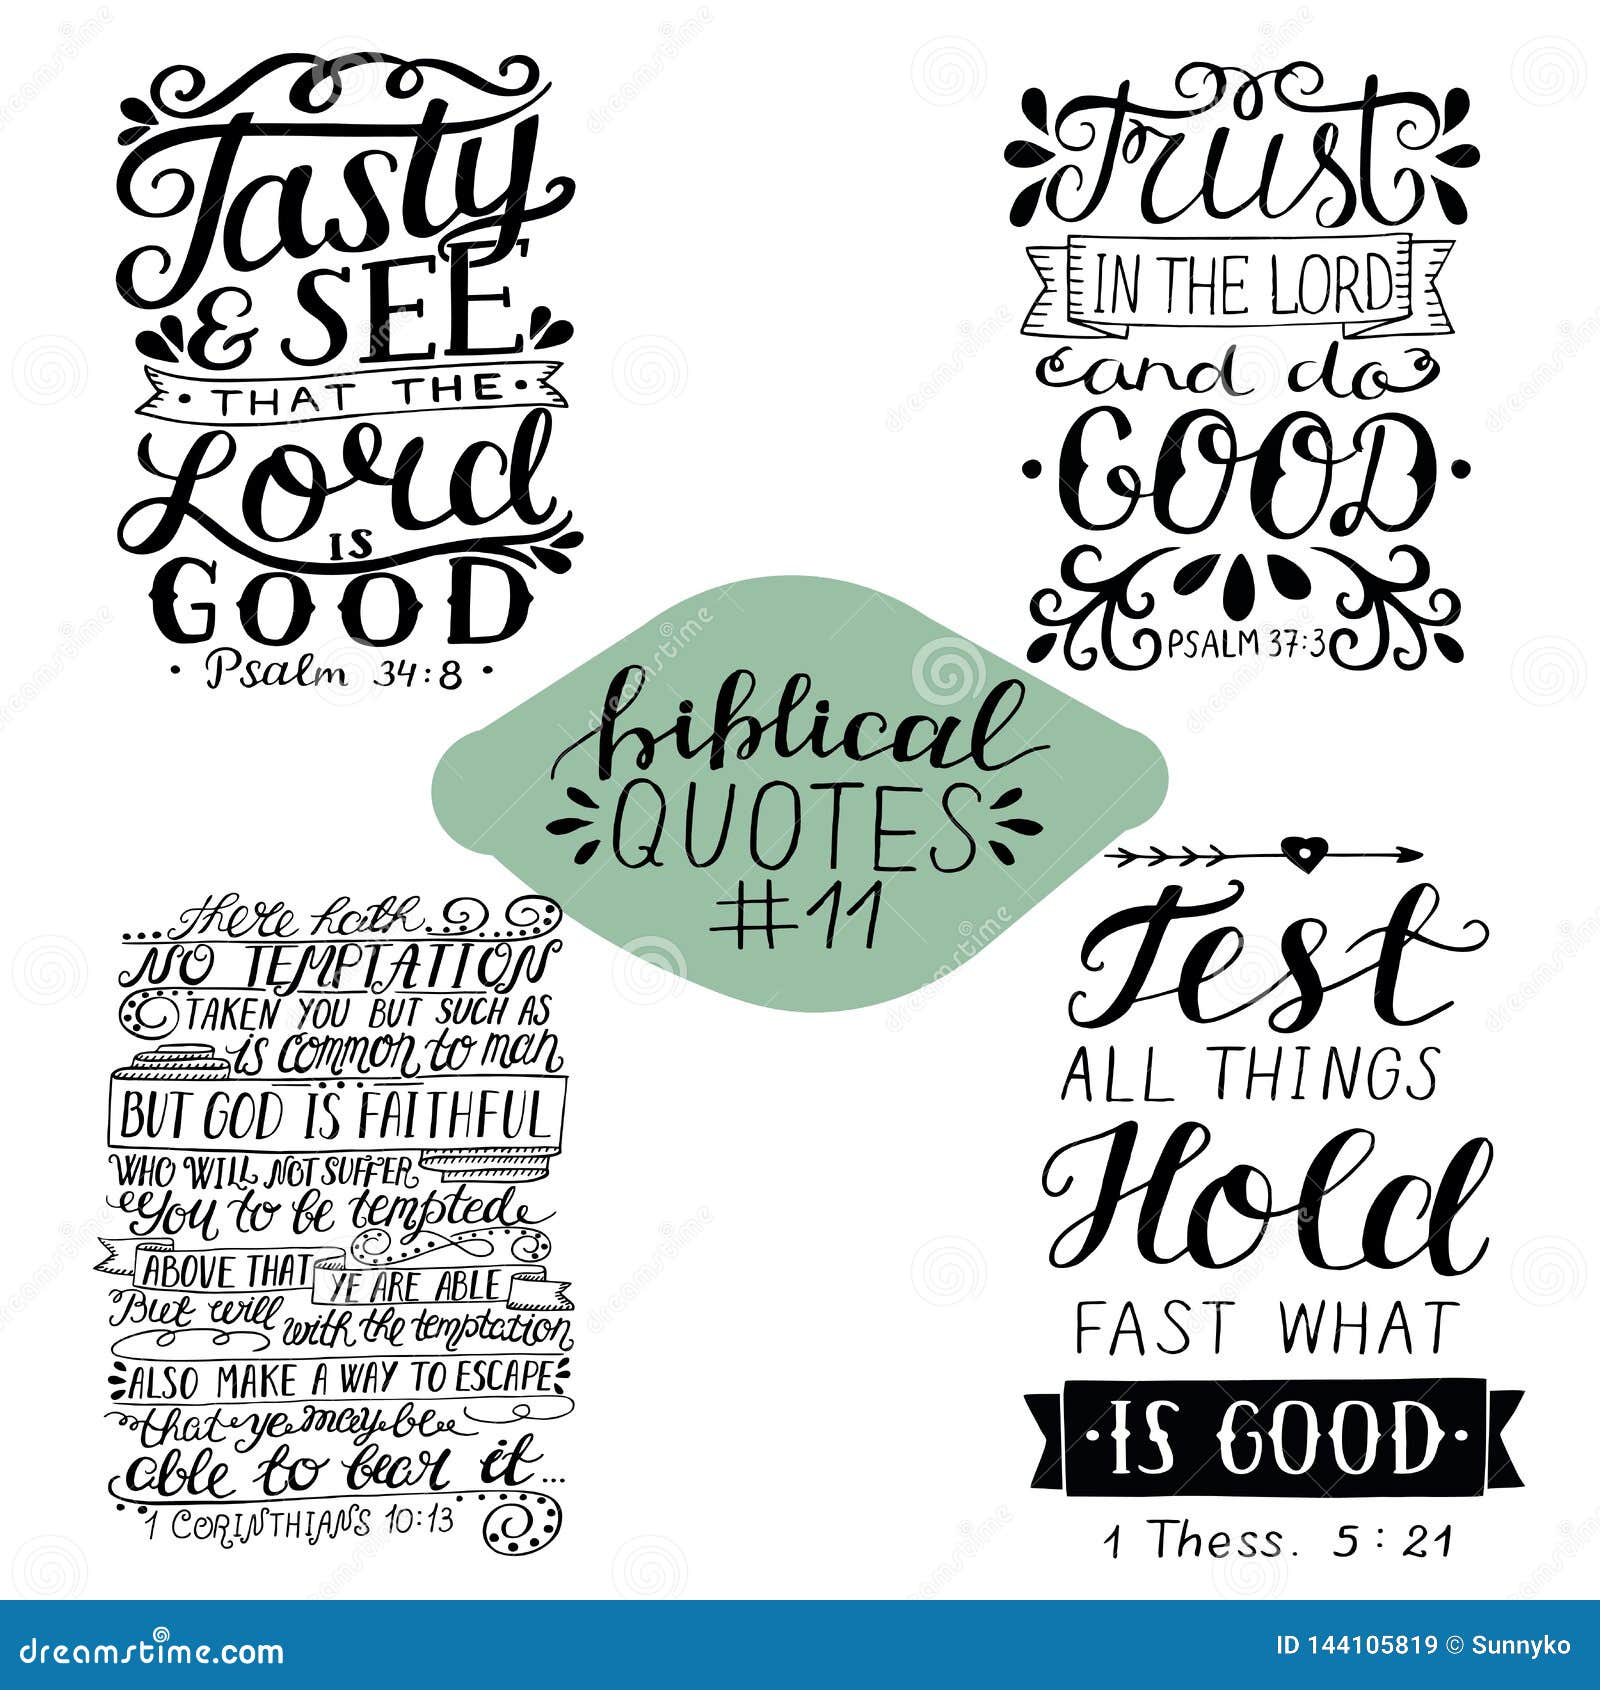 Tasty
& SEE
THAT THE
Lord
IS
GOOD
Psalm 34:8
Trust
IN THE LORD
and do
GOOD
PSALM 37:3
biblical
QUOTES
#11
there hath
NO TEMPTATION
TAKEN YOU BUT SUCH AS
is common to man
BUT GOD IS FAITHFUL
WHO WILL NOT SUFFER
you to be tempted
ABOVE THAT YE ARE ABLE
But will with the temptation
ALSO MAKE A WAY TO ESCAPE
that ye may be
able to bear it...
1 CORINTHIANS 10:13
Test
ALL THINGS
Hold
FAST WHAT
IS GOOD
1 Thess. 5:21
dreamstime.com
ID 144105819 © Sunnyko